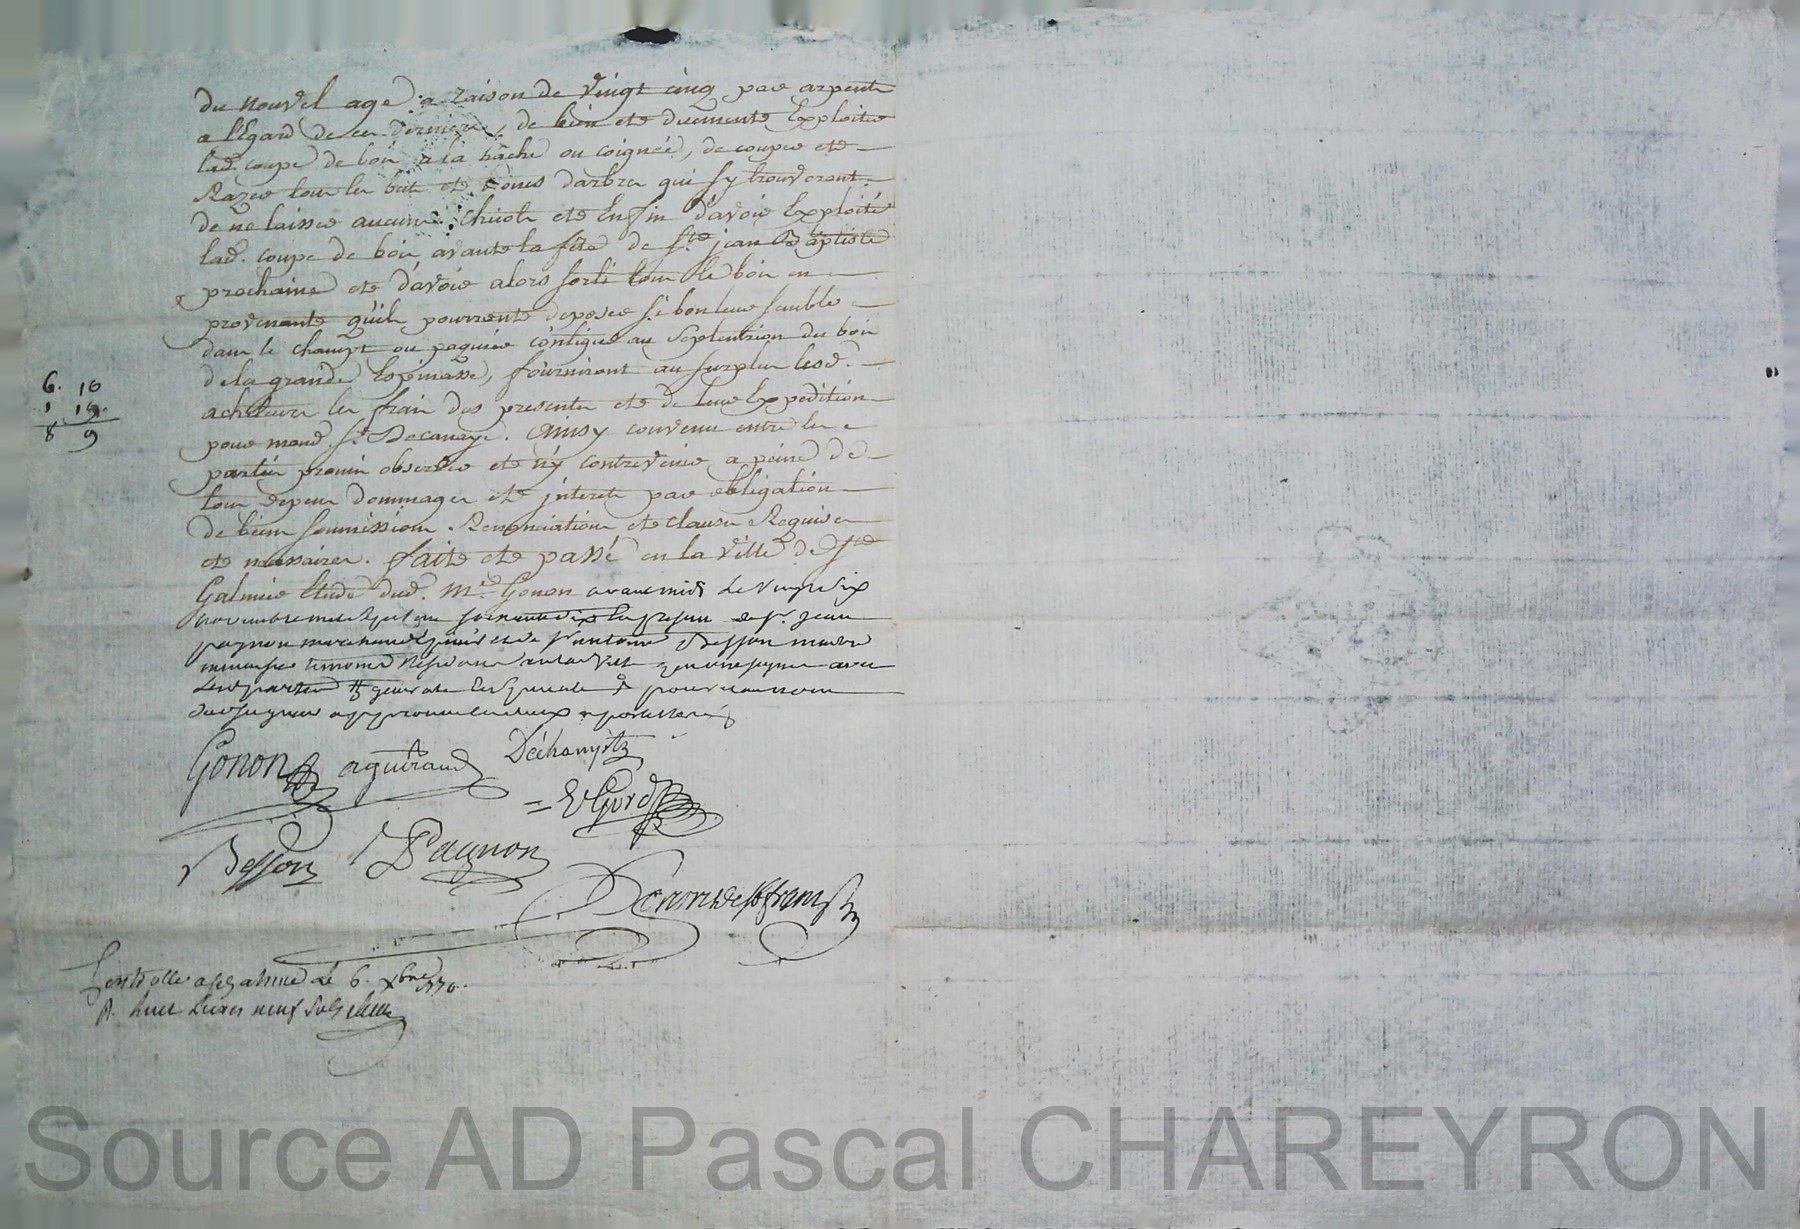 du nouvel age a raison de vingt cinq par arpent
a l'Egard de ces derniers, de bien ete duement Exploiter
lad. coupe de bois a la hâche ou coignée, de couper ete
Razer tous les buis ete troncs darbres qui sy trouveront
de ne laisser aucuns chicots ete Enfin d'avoir Exploité
lad. coupe de bois, avante la fête de St jean Baptiste
prochaine ete d'avoir alors sorti tout le bois en
provenante qu'ils pourronte deposer si bon leur semble
dans le champt ou paquier contigue au Septentrion du bois
de la grande Espinasse, fourniront au surplus lesd.
acheteurs les frais des presentes ete de leur Expédition
pour mond. Sr Decanaye. Ainsy convenu entre les
parties promis observer ete n'y contrevenir a peine de
tous depens dommages ete jnterets par obligation
de biens soumissions Renonciations ete clauses Requises
ete necessaires. faite ete passé en la ville de St
Galmier Etude dud. Me. Gonon avant midi Le vingt six
novembre mil sept cent soixante dix En presence de Sr. Jean
pagnon marchand et de Sr antoine Besson maitre
temoins Residants en lad. ville qui ont signé avec
Les parties
Gonon aguiraud Déchampts
V Gord
Besson Pagnon
Denoris de St frans
Controlle a St galmier Le 6. Xbre 1770.
R. huit Livres neuf sols
6. 10
1. 19.
8 9
Source AD Pascal CHAREYRON